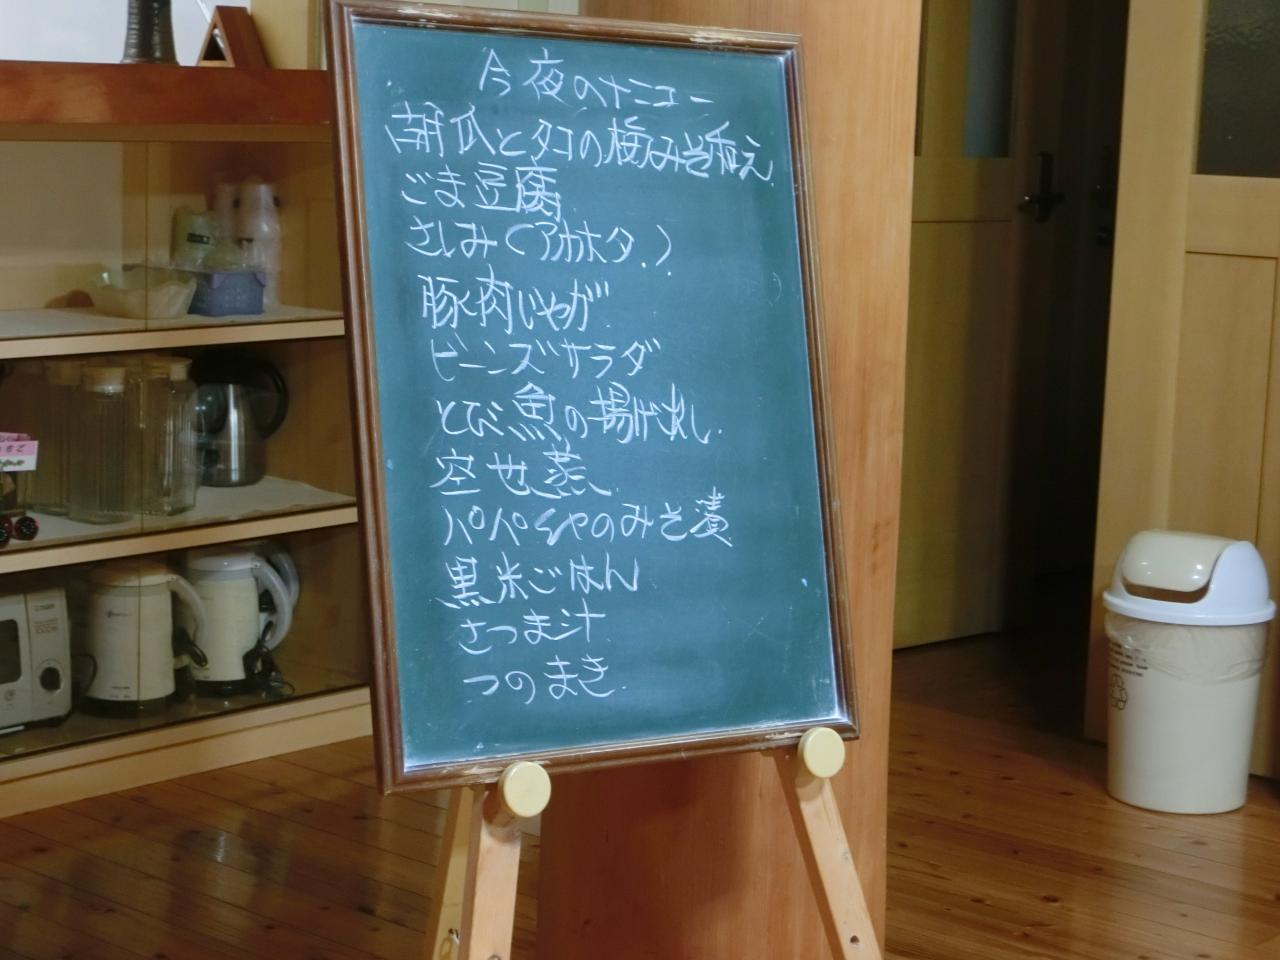 今夜のメニュー
胡瓜とタコの梅みそ和え
ごま豆腐
さしみ(アカホタ.)
豚肉じゃが
ビーンズサラダ
とび魚の揚げ出し
空也蒸
パパイヤのみそ漬
黒米ごはん
さつま汁
つのまき